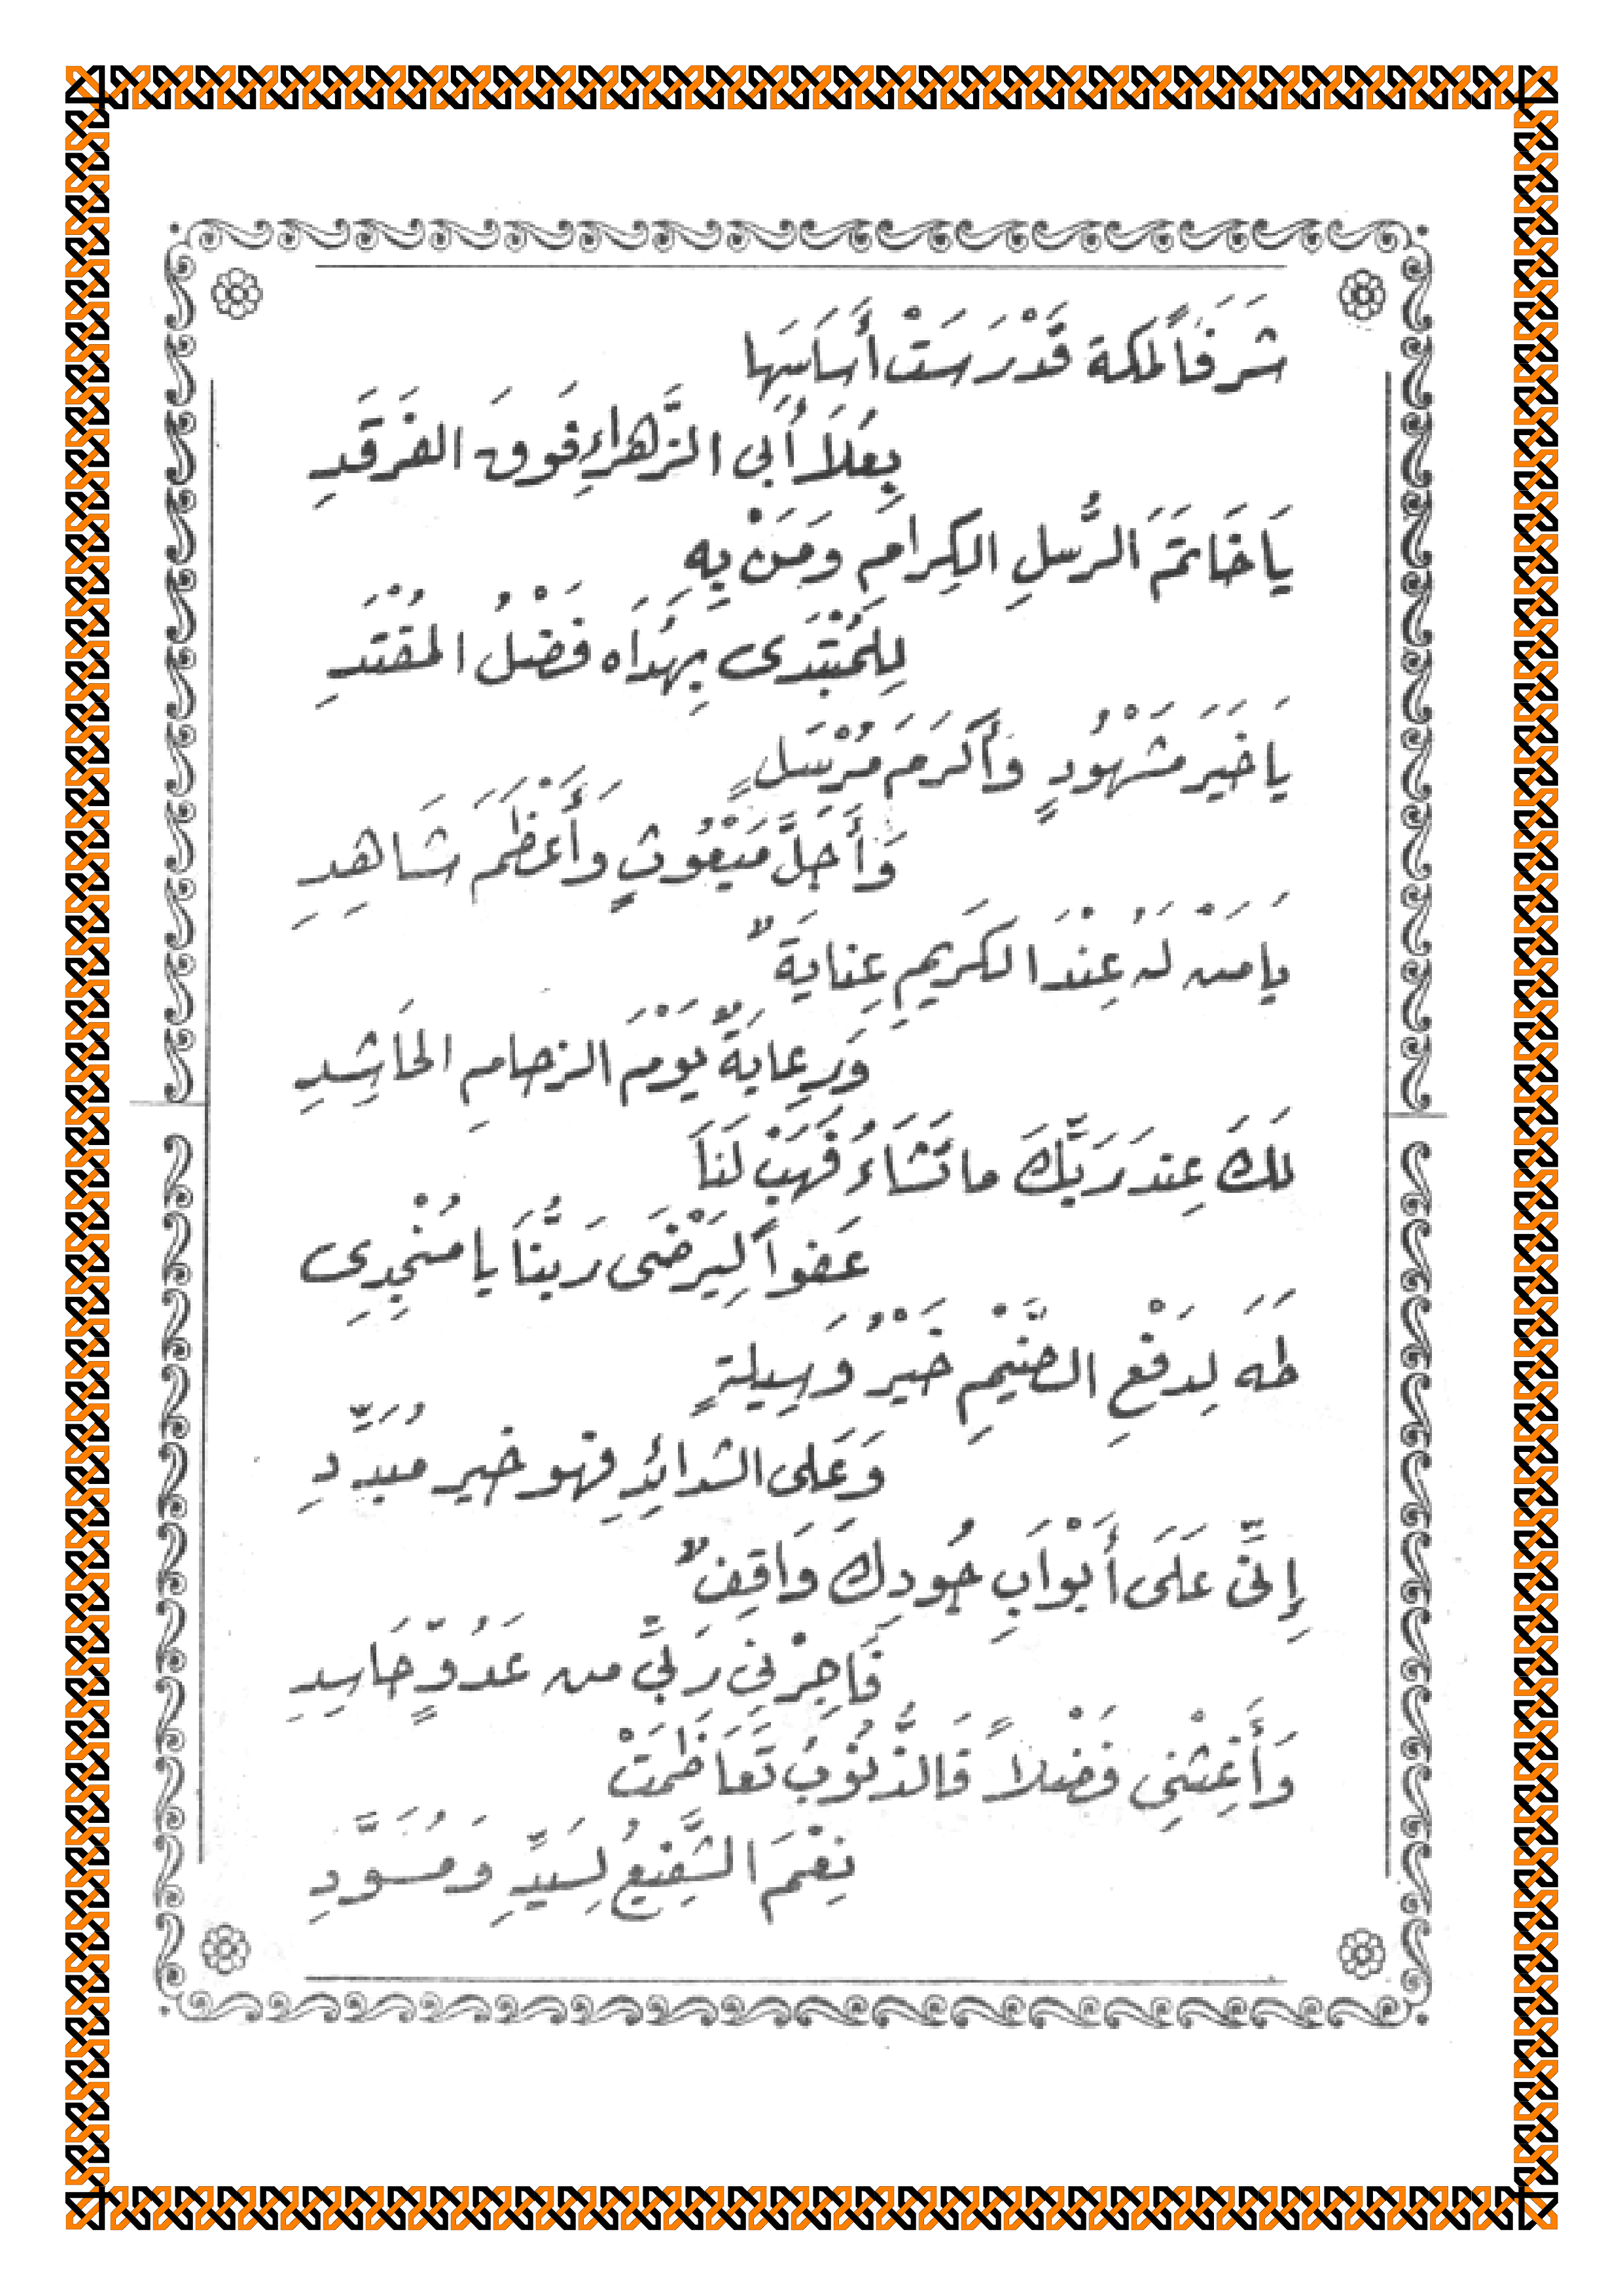 شَرَفَاً لمَكة قَدْ رَسَتْ أَسَاسَهِا
بِعُلَا أَبِى الزَّهراءِ فَوقَ الفَرقَدِ
يَا خَاتَمَ الرُّسلِ الكِرامِ وَمَنْ بِهِ
لِلمُبْتَدَى بِهُدَاه فَضْلُ المُقْتَدِ
يَا خَيَر مَشْهُودٍ وَأَكرَمَ مُرْسَلٍ
وَأَجَلَّ مَبْعُوثٍ وَأَعْظَمَ شَاهِدِ
يَا مَنْ لَهُ عِنْدَ الكَرِيمِ عِنايَةٌ
وَرِعايَةٌ يَوْمَ الزحامِ الحَاشِدِ
لَكَ عِندَ رَبِّكَ ما تَشَاءُ فَهَبْ لَنَا
عَفواً لِيَرْضَى رَبُّنَا يا مُنْجِدِى
طَهَ لِدَفْعِ الضَّيْمِ خَيْرُ وَسِيلةٍ
وَعَلى الشدائِدِ فهو خير مُبَدِّدِ
إِنِّى عَلَى أَبْوَابِ جُودِكَ وَاقِفٌ
فَاجِرْنِى رَبِّى من عَدُوٍّ حَاسِدِ
وَأَغِثْنِى فَضْلاً فَالذُّنُوْبُ تَعَاظَمَتْ
نِعْمَ الشَّفِيعُ لِسَيِّدِ وَمُسَوَّدِ